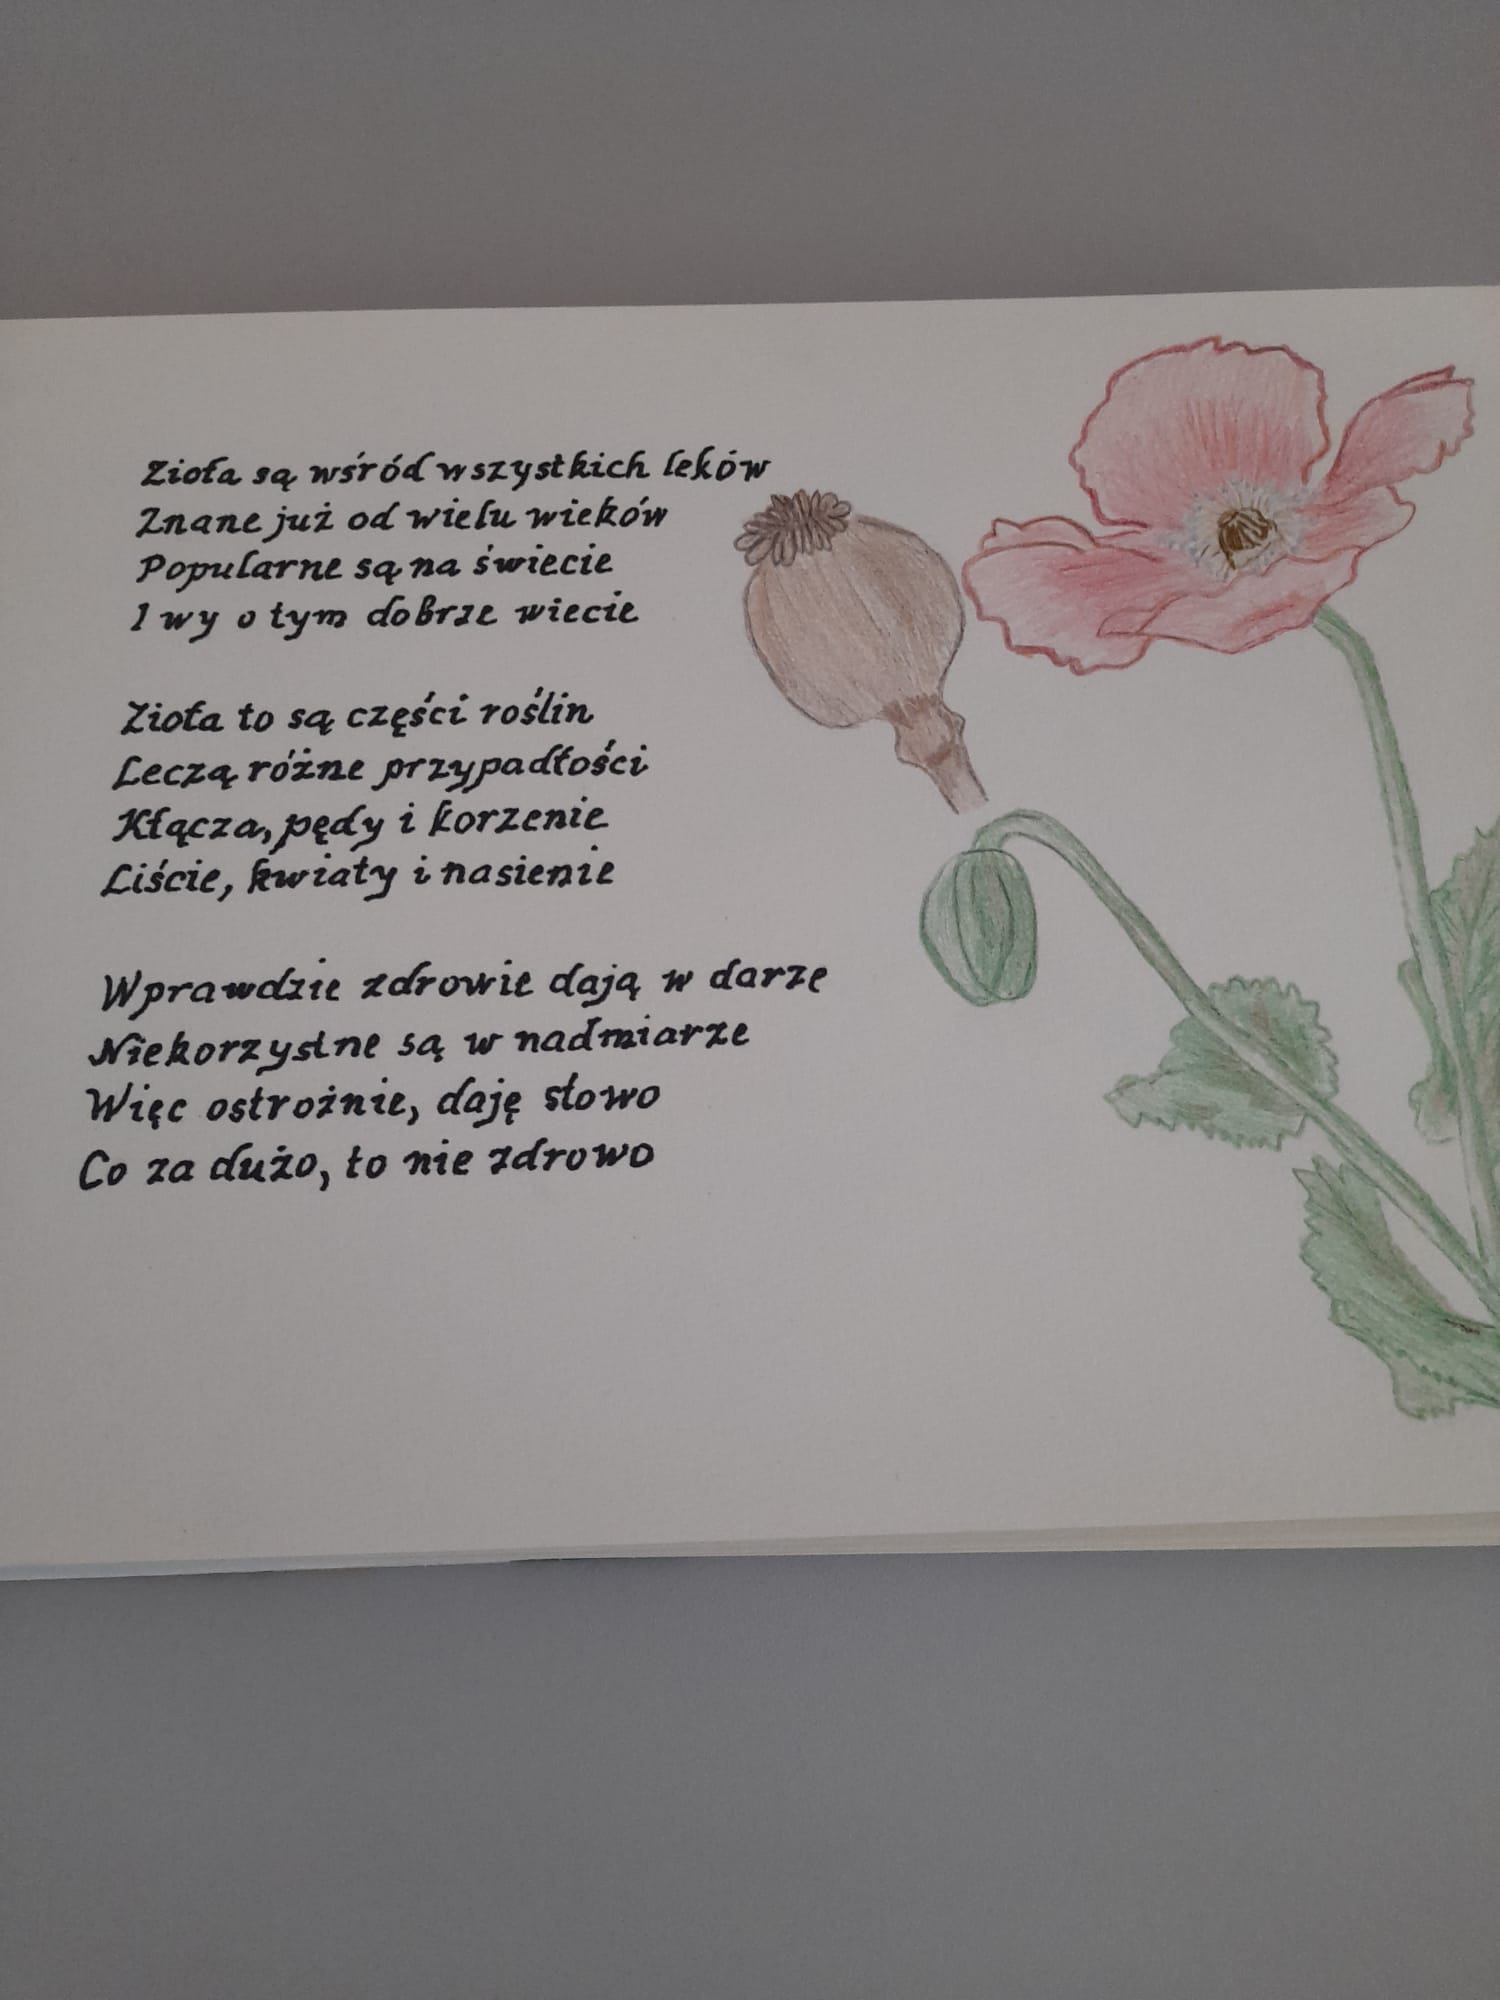 Zioła są wśród wszystkich leków
Znane już od wielu wieków
Popularne są na świecie
I wy o tym dobrze wiecie
Zioła to są części roślin
Leczą różne przypadłości
Kłącza, pędy i korzenie
Liście, kwiaty i nasienie
Wprawdzie zdrowie dają w darze
Niekorzystne są w nadmiarze
Więc ostrożnie, daję słowo
Co za dużo, to nie zdrowo